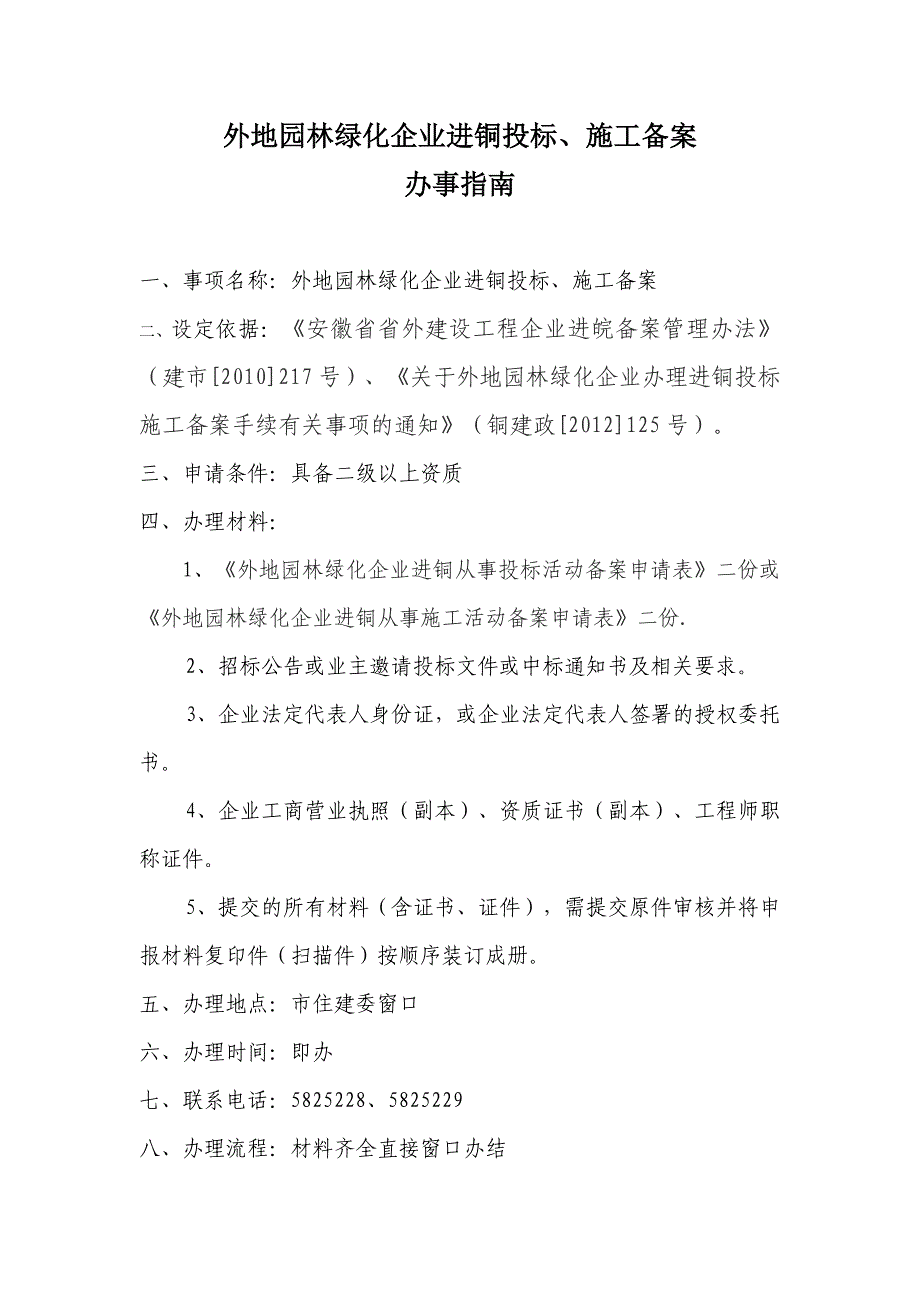 外地园林绿化企业进铜投标、施工备案
办事指南
一、事项名称：外地园林绿化企业进铜投标、施工备案
二、设定依据：《安徽省省外建设工程企业进皖备案管理办法》
（建市[2010]217号）、《关于外地园林绿化企业办理进铜投标
施工备案手续有关事项的通知》（铜建政[2012]125号）。
三、申请条件：具备二级以上资质
四、办理材料：
1、《外地园林绿化企业进铜从事投标活动备案申请表》二份或
《外地园林绿化企业进铜从事施工活动备案申请表》二份.
2、招标公告或业主邀请投标文件或中标通知书及相关要求。
3、企业法定代表人身份证，或企业法定代表人签署的授权委托
书。
4、企业工商营业执照（副本）、资质证书（副本）、工程师职
称证件。
5、提交的所有材料（含证书、证件），需提交原件审核并将申
报材料复印件（扫描件）按顺序装订成册。
五、办理地点：市住建委窗口
六、办理时间：即办
七、联系电话：5825228、5825229
八、办理流程：材料齐全直接窗口办结